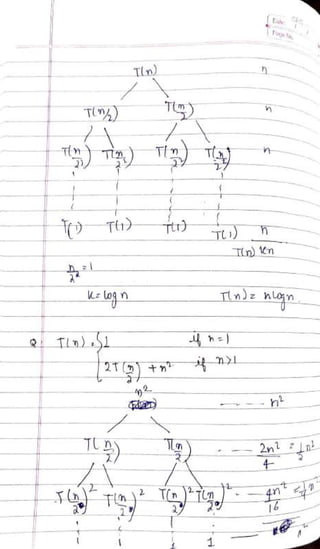 Date
Page No.
T(n) n
T(n/2) T(n/2) n
T(n/2²) T(n/2²) T(n/2²) T(n/2²) n
T(1) T(1) T(1) T(1) n
T(n) kn
n/2ᵏ = 1
k = log n T(n) = n log n
Q T(n) = { 1 if n = 1
2T(n/2) + n² if n > 1
n² ---- n²
T(n/2) T(n/2) --- 2n²/4 = 1/2 n²
T(n/2²)² T(n/2²)² T(n/2²)² T(n/2²)² -- 4n²/16 = 1/4 n²
1 1